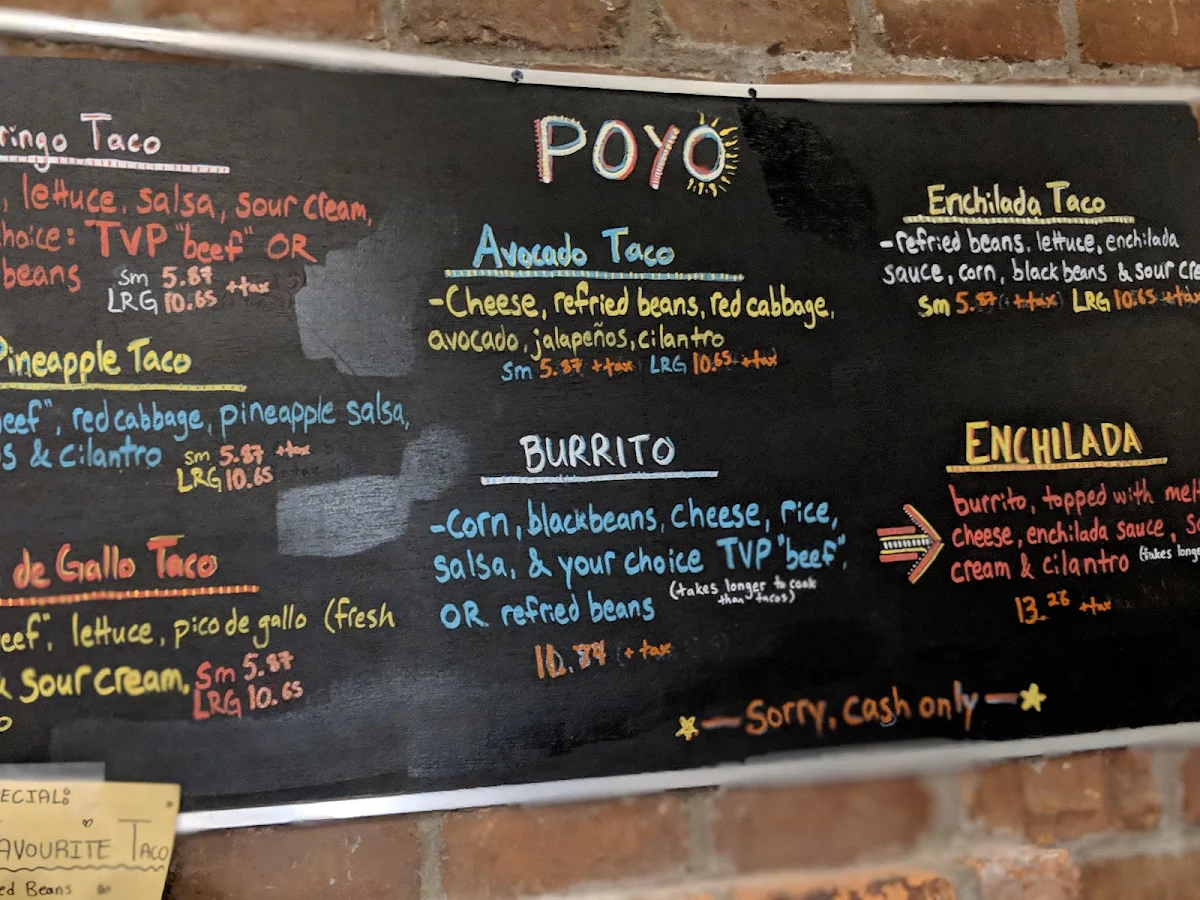 Taco
lettuce, salsa, sour cream,
TVP "beef" OR
beans
Sm 5.87 + tax
LRG 10.65
Pineapple Taco
red cabbage, pineapple salsa,
& cilantro
Sm 5.87 + tax
LRG 10.65
de Gallo Taco
lettuce, pico de gallo (fresh
sour cream.
Sm 5.87
LRG 10.65
POYO
Avocado Taco
-Cheese, refried beans, red cabbage,
avocado, jalapeños, cilantro
Sm 5.87 + tax LRG 10.65 + tax
BURRITO
-Corn, blackbeans, cheese, rice,
salsa, & your choice TVP "beef".
OR refried beans
(takes longer to cook
than tacos)
+ tax
Enchilada Taco
-refried beans, lettuce, enchilada
sauce, corn, black beans & sour
Sm 5.87 + tax LRG 10.65 + tax
ENCHILADA
burrito, topped with
cheese, enchilada sauce,
cream & cilantro (takes
13.28 + tax
Sorry, cash only
Taco
Beans